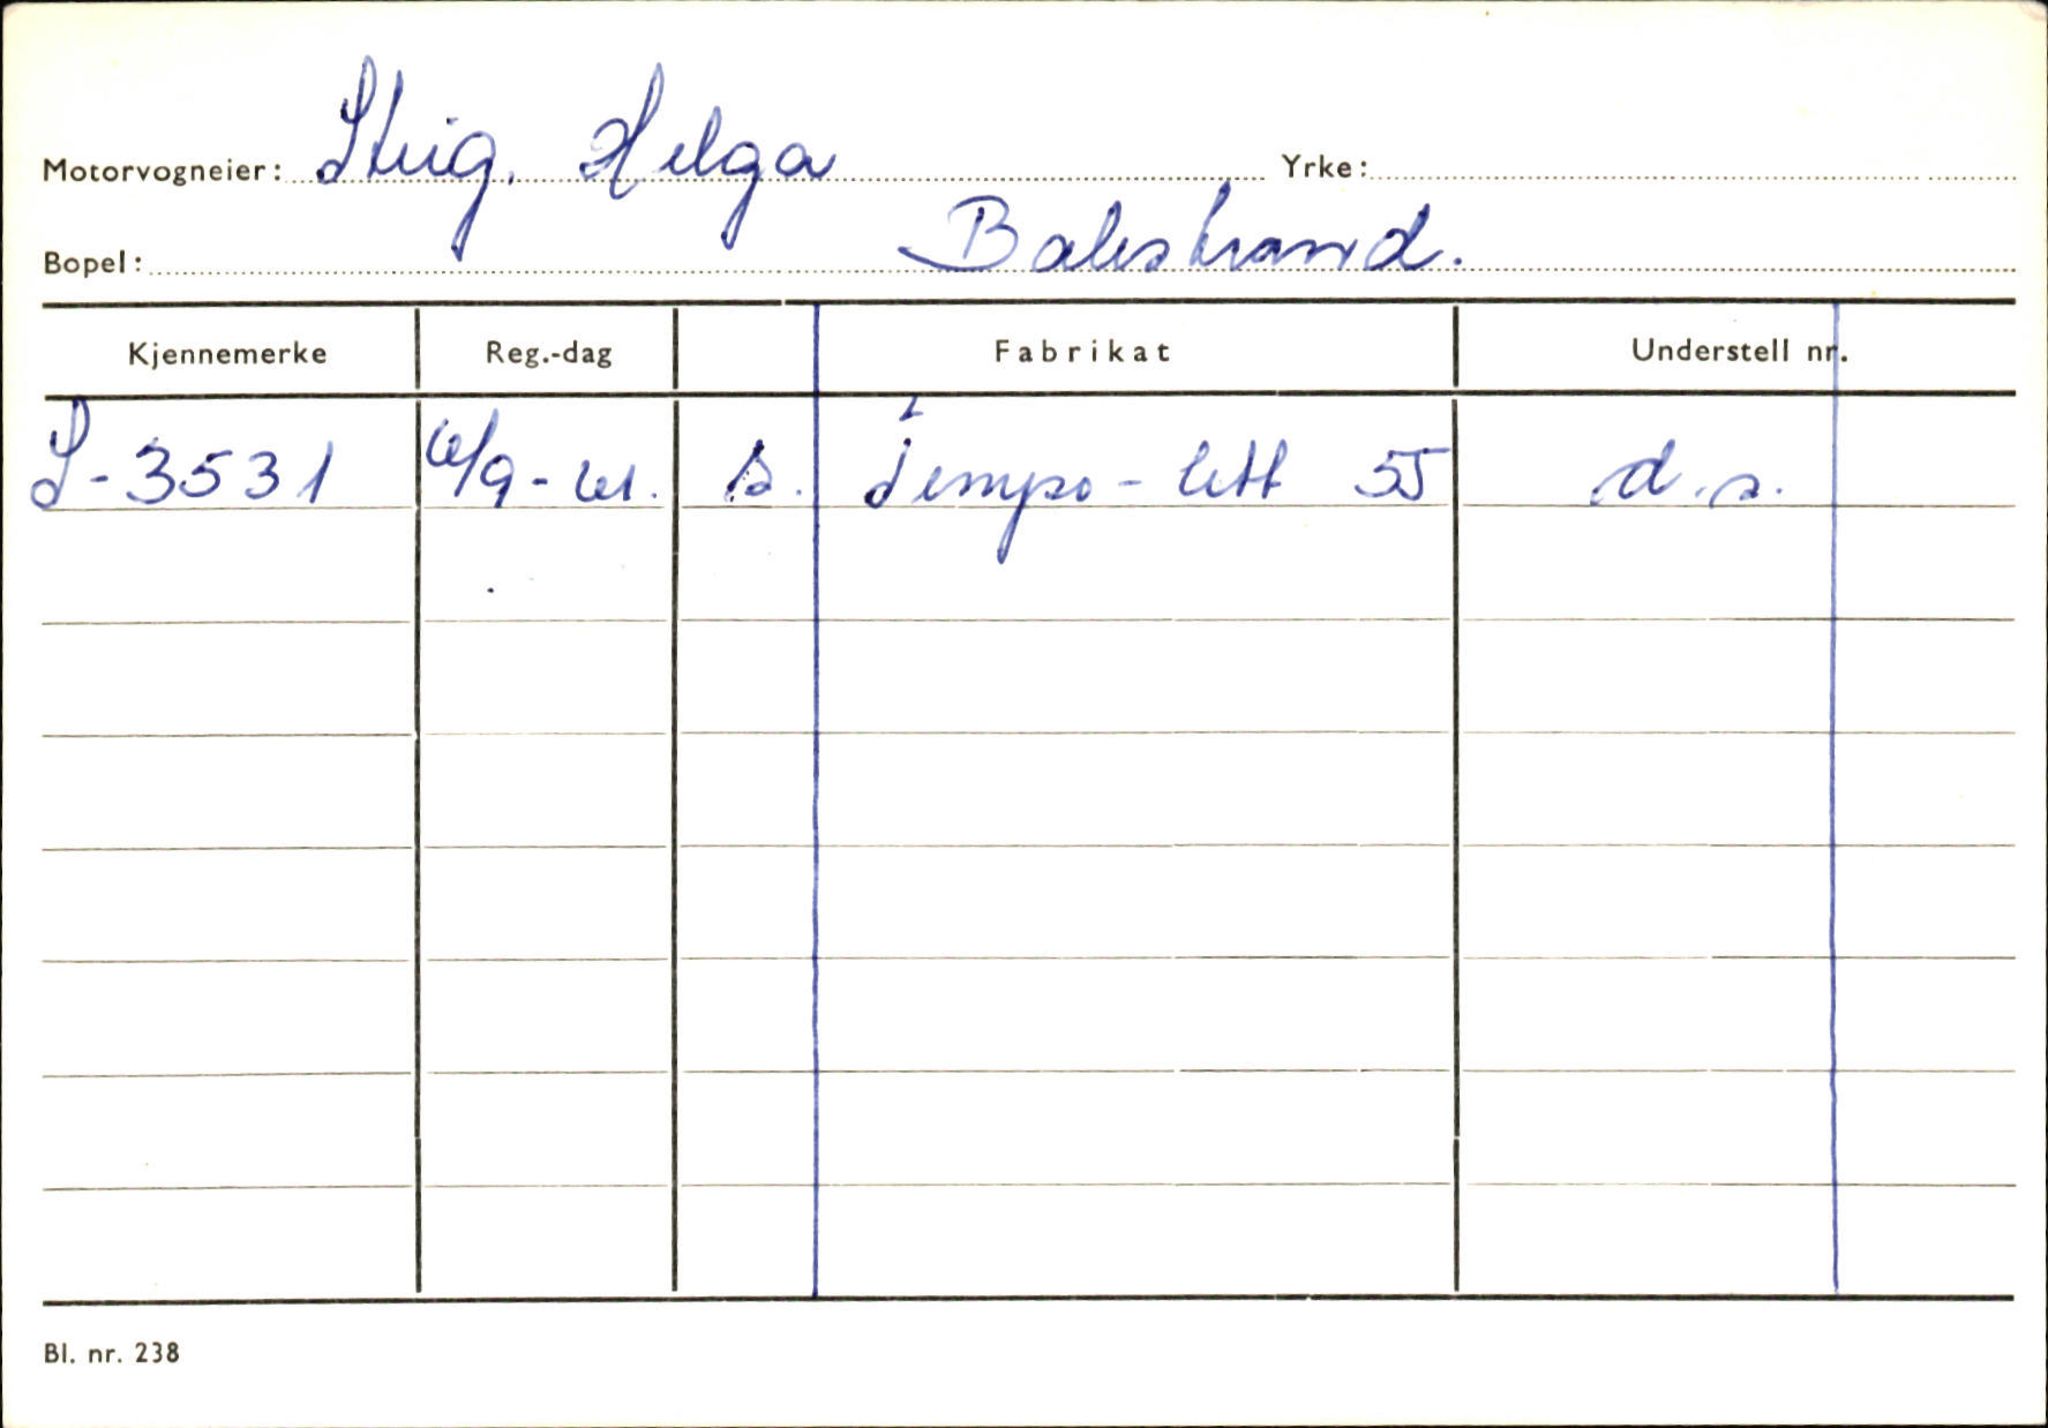 Motorvogneier: Steig, Helga Yrke:
Bopel: Balestrand.
Kjennemerke Reg.-dag Fabrikat Understell nr.
S-3531 6/9-61. Tempo-lett 55 d.s.
Bl. nr. 238